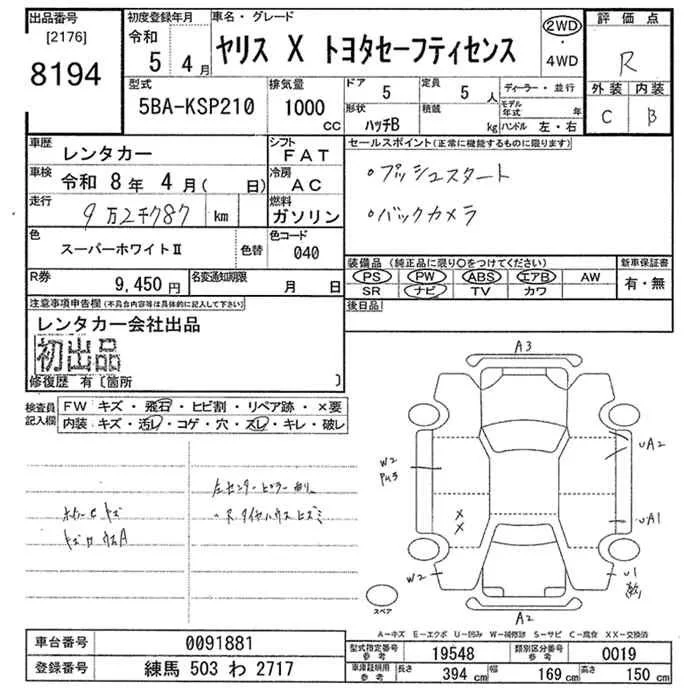 出品番号
[2176]
8194
初度登録年月
令和
5 4月
車名・グレード
ヤリス X トヨタセーフティセンス
2WD
・
4WD
評価点
R
外装 内装
C B
型式
5BA-KSP210
排気量
1000
CC
ドア
5
定員
5 人
形状
ハッチB
積載
kg
ディーラー・並行
モデル年式 年
ハンドル 左・右
車歴
レンタカー
シフト
FAT
車検
令和 8年 4月( 日)
冷房
AC
走行
9万2千787 km
燃料
ガソリン
色
スーパーホワイトⅡ
色替
色コード
040
R券
9,450円
名変通知期限
月 日
セールスポイント(正常に機能するものに限ります)
・プッシュスタート
・バックカメラ
装備品(純正品に限り○をつけてください)
PS PW ABS エアB AW
SR ナビ TV カワ
新車保証書
有・無
後日品
注意事項申告欄(不具合内容等は具体的に記入して下さい)
レンタカー会社出品
初出品
修復歴 有〔箇所 〕
検査員
記入欄
FW キズ・飛石・ヒビ割・リペア跡・×要
内装・キズ・汚レ・コゲ・穴・スレ・キレ・破レ
左センターピラー曲り
A3
W2
UA2
UA1
X
X
W2
U1
A2
スペア
A−キズ E−エクボ U−凹み W−補修跡 S−サビ C−腐食 XX−交換済
車台番号
0091881
登録番号
練馬 503 わ 2717
型式指定番号
参考
19548
類別区分番号
参考
0019
車庫証明用
参考
長さ 394 cm 幅 169 cm 高さ 150 cm